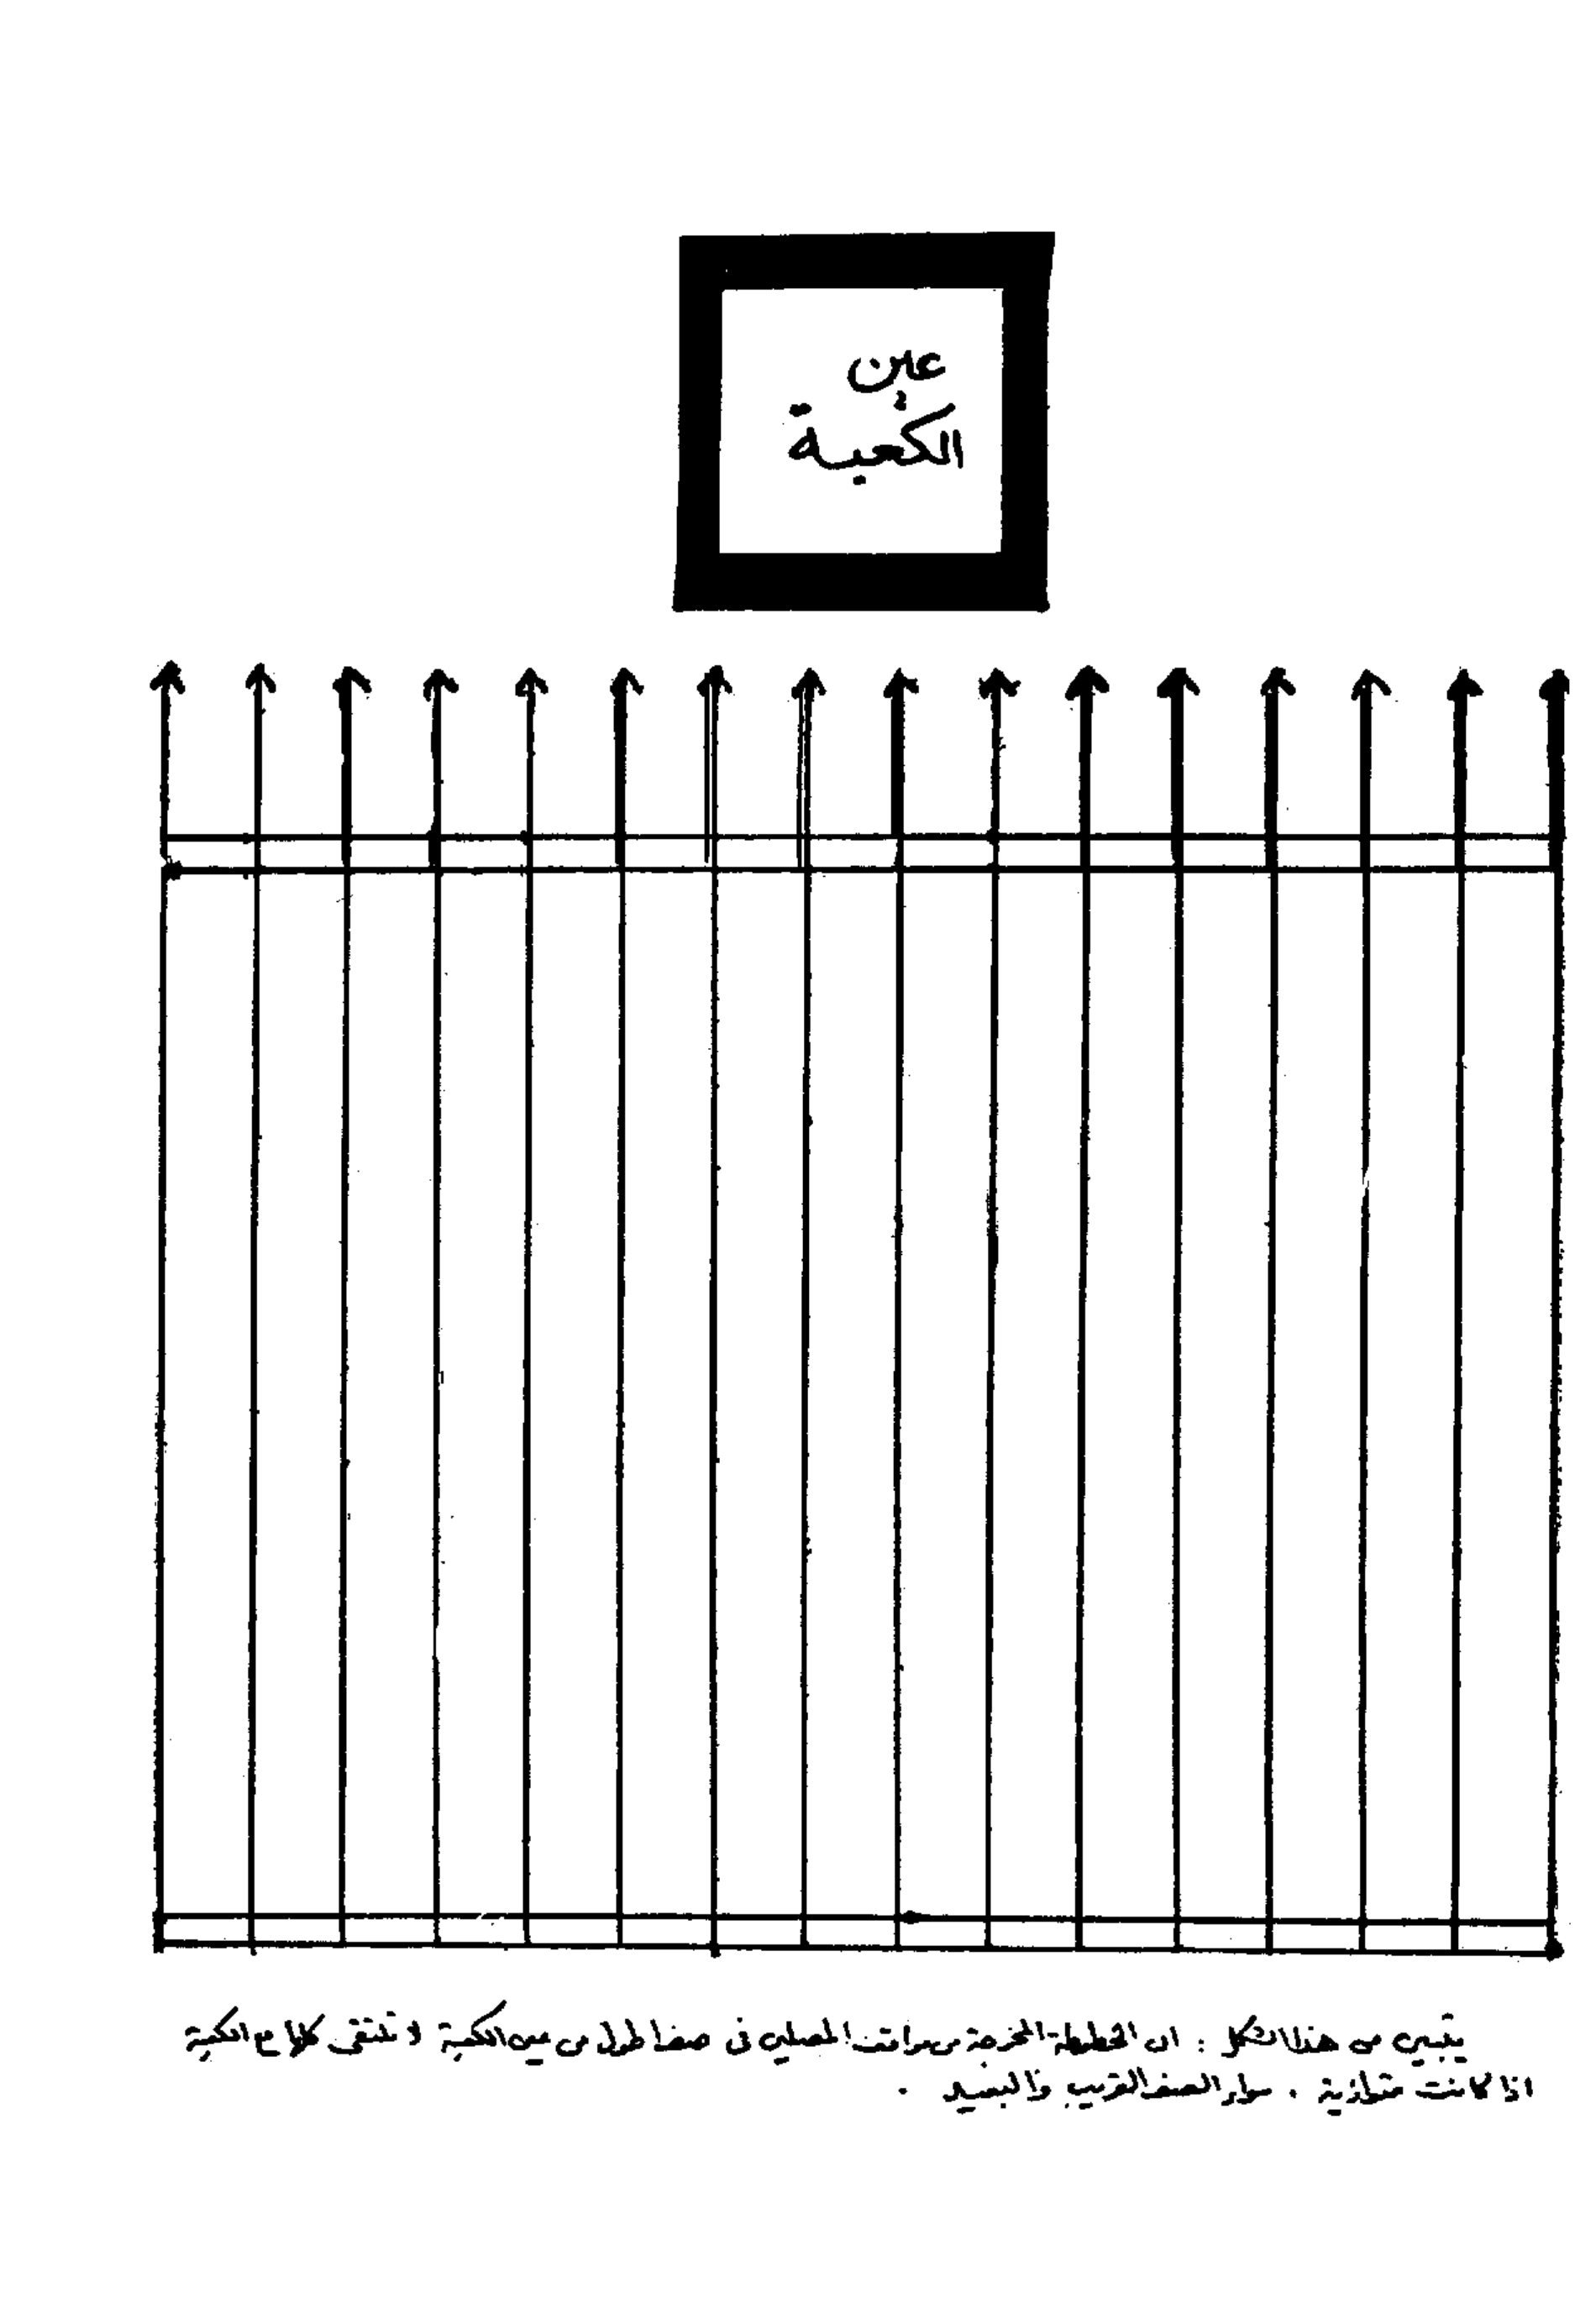 عين
الكعبة
يتبين من هذا الشكل : ان الخطوط المخرجة من مواقف المصلين في صف اطول من عين الكعبة لا تلتقى كلها مع الكعبة
اذا كانت متوازية . سواء الصف القريب والبعيد .